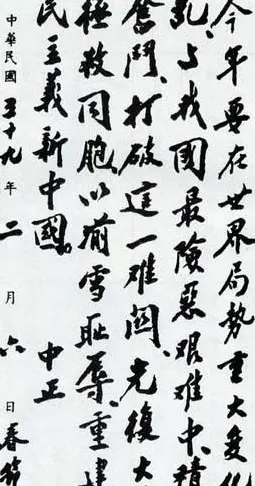 今年要在世界局勢重大变化
乱、与我國最險惡艰难中、積
奮鬥、打破這一难関、光復大
極救同胞、以湔雪耻辱、重建
民主義新中國。　中正
中華民國五十九年二月六日春節